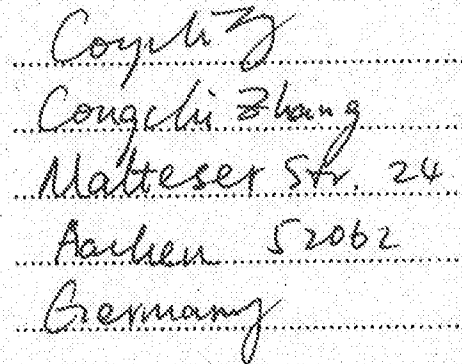 Congchi Zhang
Malteser Str. 24
Aachen 52062
Germany